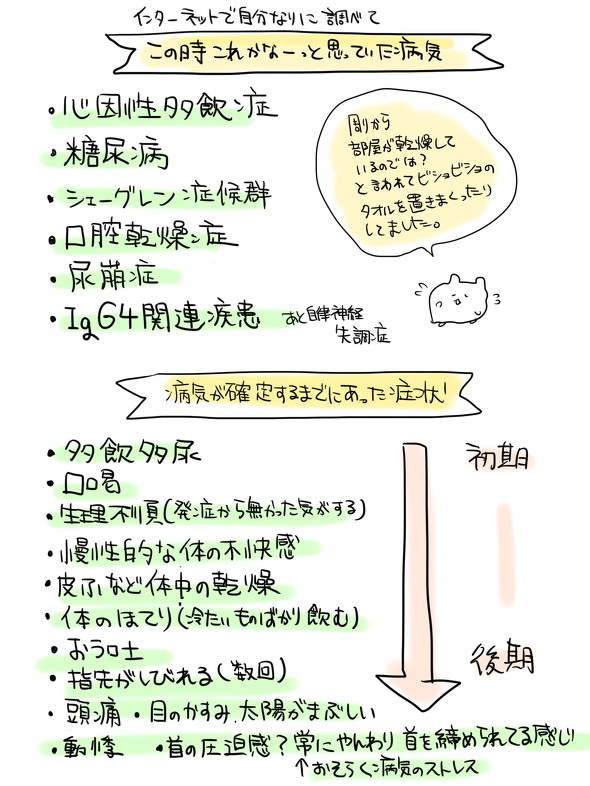 インターネットで自分なりに調べて
この時これかなーっと思っていた病気
・心因性多飲症
・糖尿病
・シェーグレン症候群
・口腔乾燥症
・尿崩症
・IgG4関連疾患 あと自律神経
失調症
周から
部屋が乾燥して
いるのでは?
と言われてビショビショの
タオルを置きまくったり
してました。
病気が確定するまでにあった症状!
・多飲多尿
・口喝
・生理不順(発症から無かった気がする)
・慢性的な体の不快感
・皮ふなど体中の乾燥
・体のほてり(冷たいものばかり飲む)
・おう吐
・指先がしびれる(数回)
・頭痛 ・目のかすみ.太陽がまぶしい
・動悸 ・首の圧迫感?常にやんわり首を締められてる感じ
↑おそらく病気のストレス
初期
後期